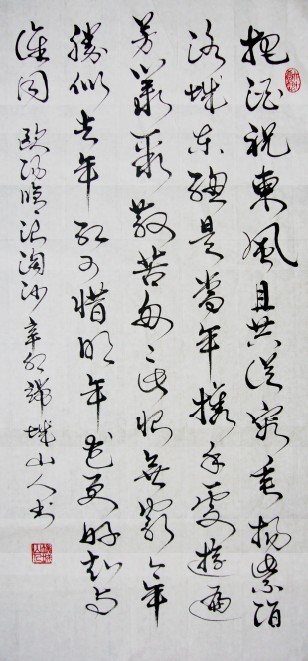 把酒祝東風且共從容垂楊紫陌
洛城東總是當年攜手處遊遍
芳叢聚散苦匆々此恨無窮今年
勝似去年紅可惜明年花更好知与
誰同 歐陽脩浪淘沙 辛卯 城山人书